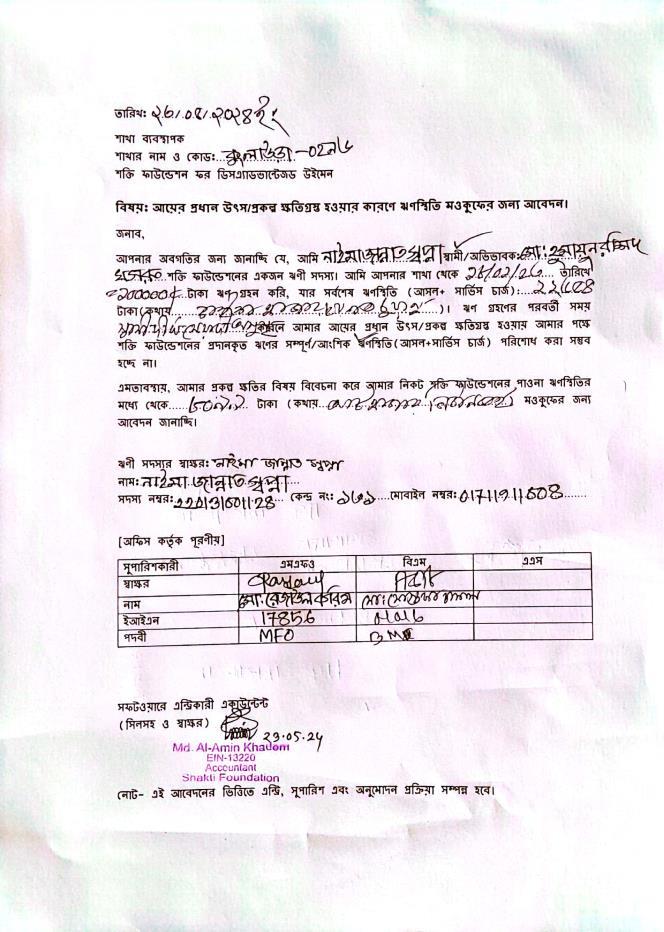 তারিখ: ২৬/০৪/২০২৪ ইং
শাখা ব্যবস্থাপক
শাখার নাম ও কোড:
শক্তি ফাউন্ডেশন ফর ডিসএ্যাডভান্টেজড উইমেন
বিষয়: আয়ের প্রধান উৎস/প্রকল্প ক্ষতিগ্রস্ত হওয়ার কারণে ঋণস্থিতি মওকুফের জন্য আবেদন।
জনাব,
আপনার অবগতির জন্য জানাচ্ছি যে, আমি নাইমা জান্নাত স্বপ্না স্বামী/অভিভাবক: মো: হুমায়ুন রশিদ
শক্তি ফাউন্ডেশনের একজন ঋণী সদস্য। আমি আপনার শাখা থেকে তারিখে
টাকা ঋণ গ্রহন করি, যার সর্বশেষ ঋণস্থিতি (আসল+ সার্ভিস চার্জ):
টাকা (কথায় )। ঋণ গ্রহণের পরবর্তী সময়
আমার আয়ের প্রধান উৎস/প্রকল্প ক্ষতিগ্রস্ত হওয়ায় আমার পক্ষে
শক্তি ফাউন্ডেশনের প্রদানকৃত ঋণের সম্পূর্ণ/আংশিক ঋণস্থিতি (আসল+সার্ভিস চার্জ) পরিশোধ করা সম্ভব
হচ্ছে না।
এমতাবস্থায়, আমার প্রকল্প ক্ষতির বিষয় বিবেচনা করে আমার নিকট শক্তি ফাউন্ডেশনের পাওনা ঋণস্থিতির
মধ্যে থেকে টাকা (কথায় ) মওকুফের জন্য
আবেদন জানাচ্ছি।
ঋণী সদস্যর স্বাক্ষর: নাইমা জান্নাত স্বপ্না
নাম: নাইমা জান্নাত স্বপ্না
সদস্য নম্বর: কেন্দ্র নং: ১৬১ মোবাইল নম্বর: 01711911608
[অফিস কর্তৃক পূরণীয়]
সুপারিশকারী এমএফও বিএম এএস
স্বাক্ষর
নাম মো: রেজাউল করিম
ইআইএন 17856
পদবী MFO BM
সফটওয়ারে এন্ট্রিকারী একাউন্টেন্ট
(সিলসহ ও স্বাক্ষর) 23.05.24
Md. Al-Amin Khadem
EIN-13220
Accountant
Shakti Foundation
নোট- এই আবেদনের ভিত্তিতে এন্ট্রি, সুপারিশ এবং অনুমোদন প্রক্রিয়া সম্পন্ন হবে।